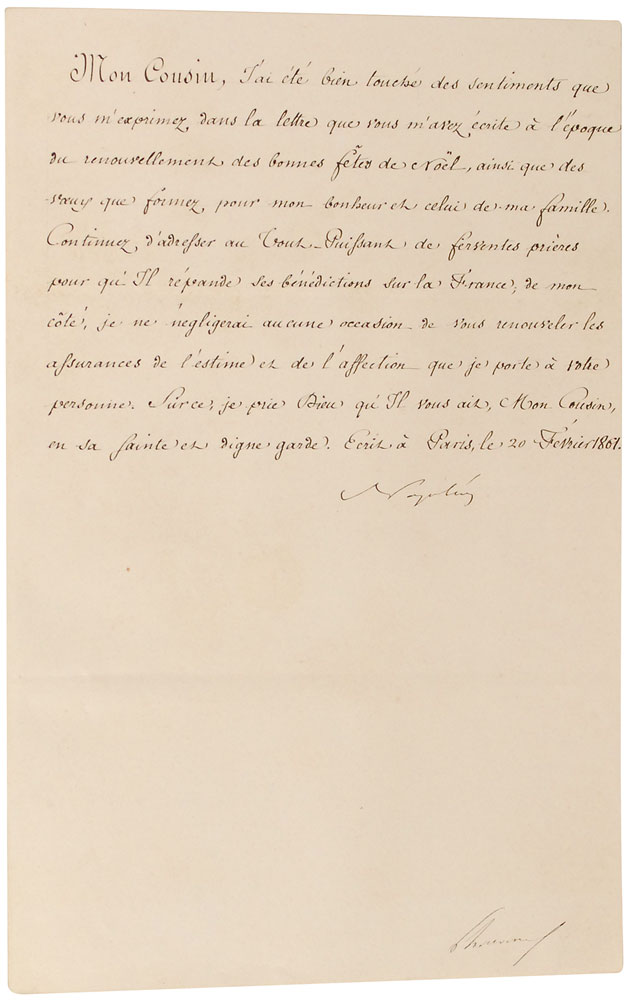 Mon Cousin, J'ai été bien touché des sentiments que
vous m'exprimez, dans la lettre que vous m'avez écrite à l'époque
du renouvellement des bonnes fêtes de Noël, ainsi que des
vœux que formez, pour mon bonheur et celui de ma famille.
Continuez, d'adresser au Tout-Puissant de ferventes prières
pour qu'Il répande ses bénédictions sur la France; de mon
côté, je ne négligerai aucune occasion de vous renouveler les
assurances de l'estime et de l'affection que je porte à votre
personne. Sur ce, je prie Dieu qu'Il vous ait, Mon Cousin,
en sa sainte et digne garde. Ecrit à Paris, le 20 Février 1861.
Napoléon